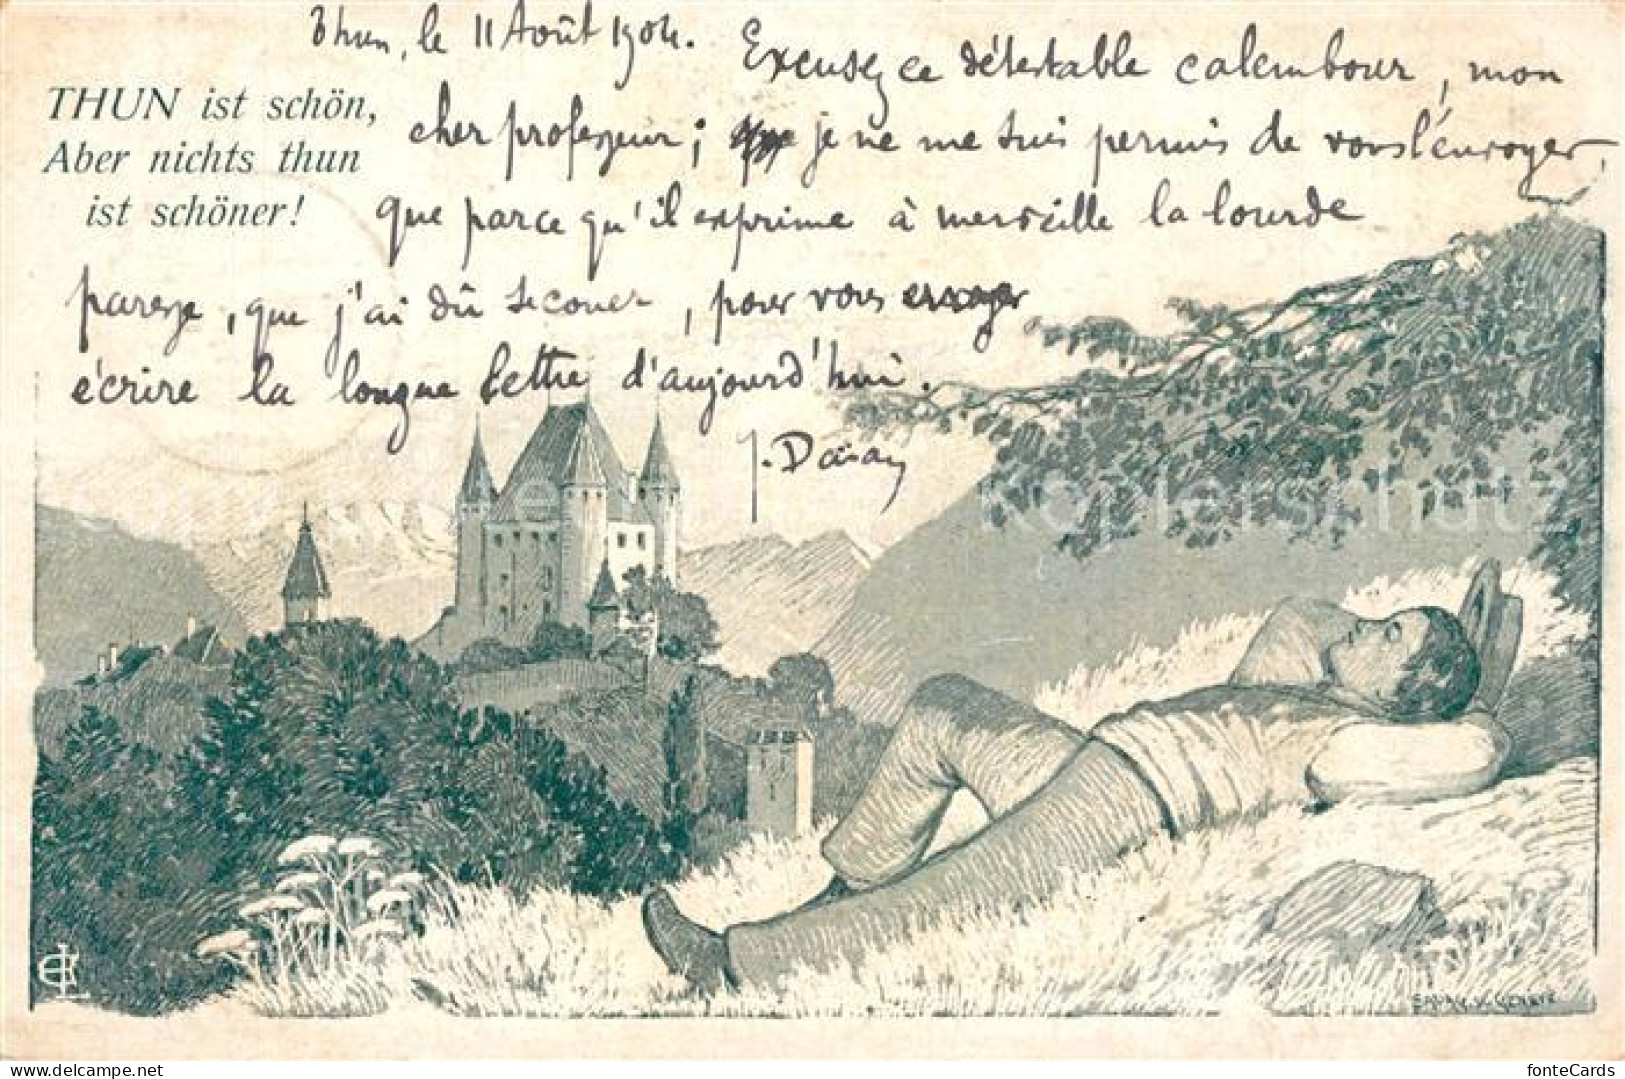 Thun, le 11 Août 1904. Excusez ce détestable calembour, mon
cher professeur; je ne me suis permis de vous l'envoyer,
que parce qu'il exprime à merveille la lourde
paresse, que j'ai dû secouer, pour vous envoyer
écrire la longue lettre d'aujourd'hui.
THUN ist schön,
Aber nichts thun
ist schöner!
Kopierschutz
fonteCards